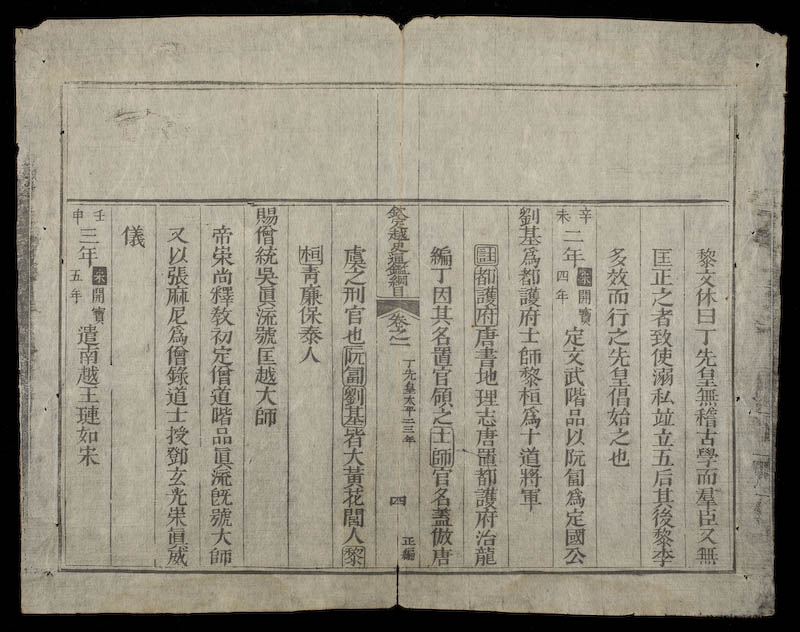 黎文休曰丁先皇無稽古學而羣臣又無
匡正之者致使溺私竝立五后其後黎李
多效而行之先皇倡始之也
辛未二年宋開寶四年定文武階品以阮匐爲定國公
劉基爲都護府士師黎桓爲十道將軍
註都護府唐書地理志唐置都護府治龍
編丁因其名置官領之士師官名蓋倣唐
欽定越史通鑑綱目
卷之一
丁先皇太平二三年
四
正編
虞之刑官也阮匐劉基皆大黃花閭人黎
桓青廉保泰人
賜僧統吳眞流號匡越大師
帝崇尚釋教初定僧道階品眞流旣號大師
又以張麻尼爲僧錄道士授鄧玄光崇眞威
儀
壬申三年宋開寶五年遣南越王璉如宋